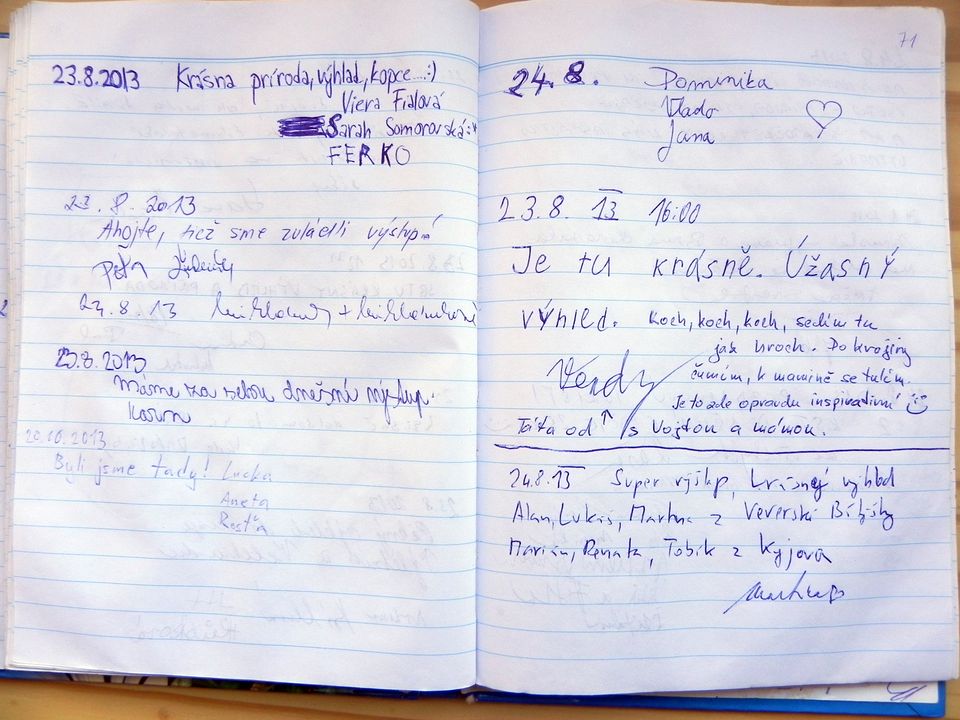 23.8.2013 Krásna príroda, výhlad, kopce....:)
Viera Fialová
Sarah Somorovská :*
FERKO
23.8.2013
Ahojte, tiež sme zvládli výstup
23.8.13
23.8.2013
Máme za sebou dnešní výstup.
20.10.2013
Byli jsme tady! Lucka
Aneta
Rosťa
71
24.8. Dominika
Vlado
Jana
23.8. 13 16:00
Je tu krásně. Úžasný
výhled. Koch, koch, koch, sedím tu
jak hroch. Do krajiny
čumím, k mamině se tulím.
Je to zde opravdu inspirativní
Vendy
Táta od ↑ s Vojtou a mámou.
24.8.13 Super výšlap, krásný výhled
Alan, Lukáš, Martina z Veverski Bítýšky
Marián, Renata, Tobik z Kyjova